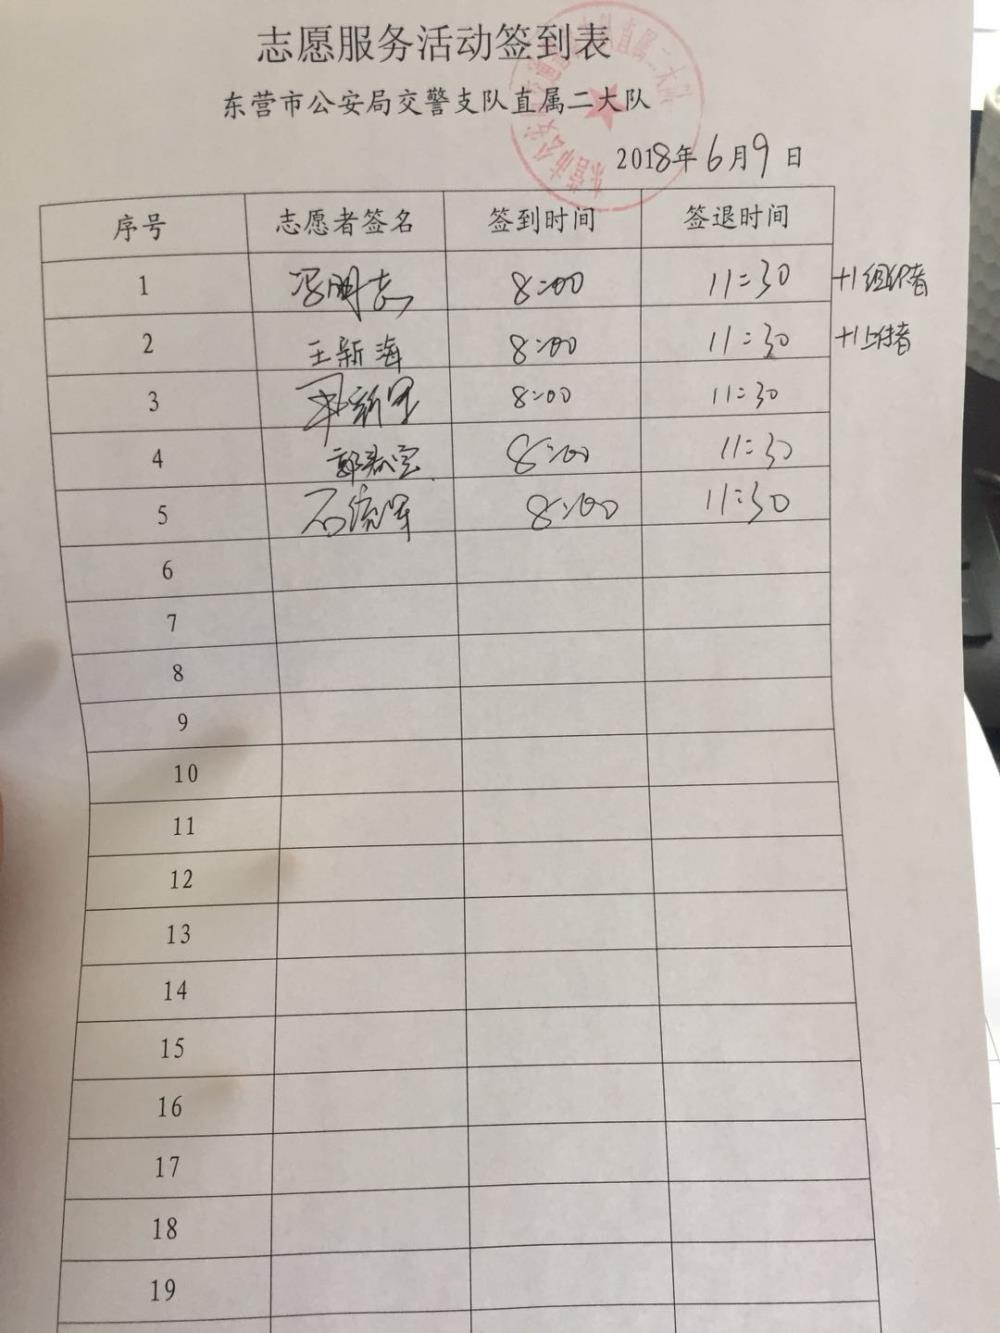 志愿服务活动签到表
东营市公安局交警支队直属二大队
2018年6月9日
序号 志愿者签名 签到时间 签退时间
1 冯明志 8:00 11:30 +1组织者
2 王新海 8:00 11:30 +1
3 新军 8:00 11:30
4 郭 8:00 11:30
5 石 军 8:00 11:30
6
7
8
9
10
11
12
13
14
15
16
17
18
19